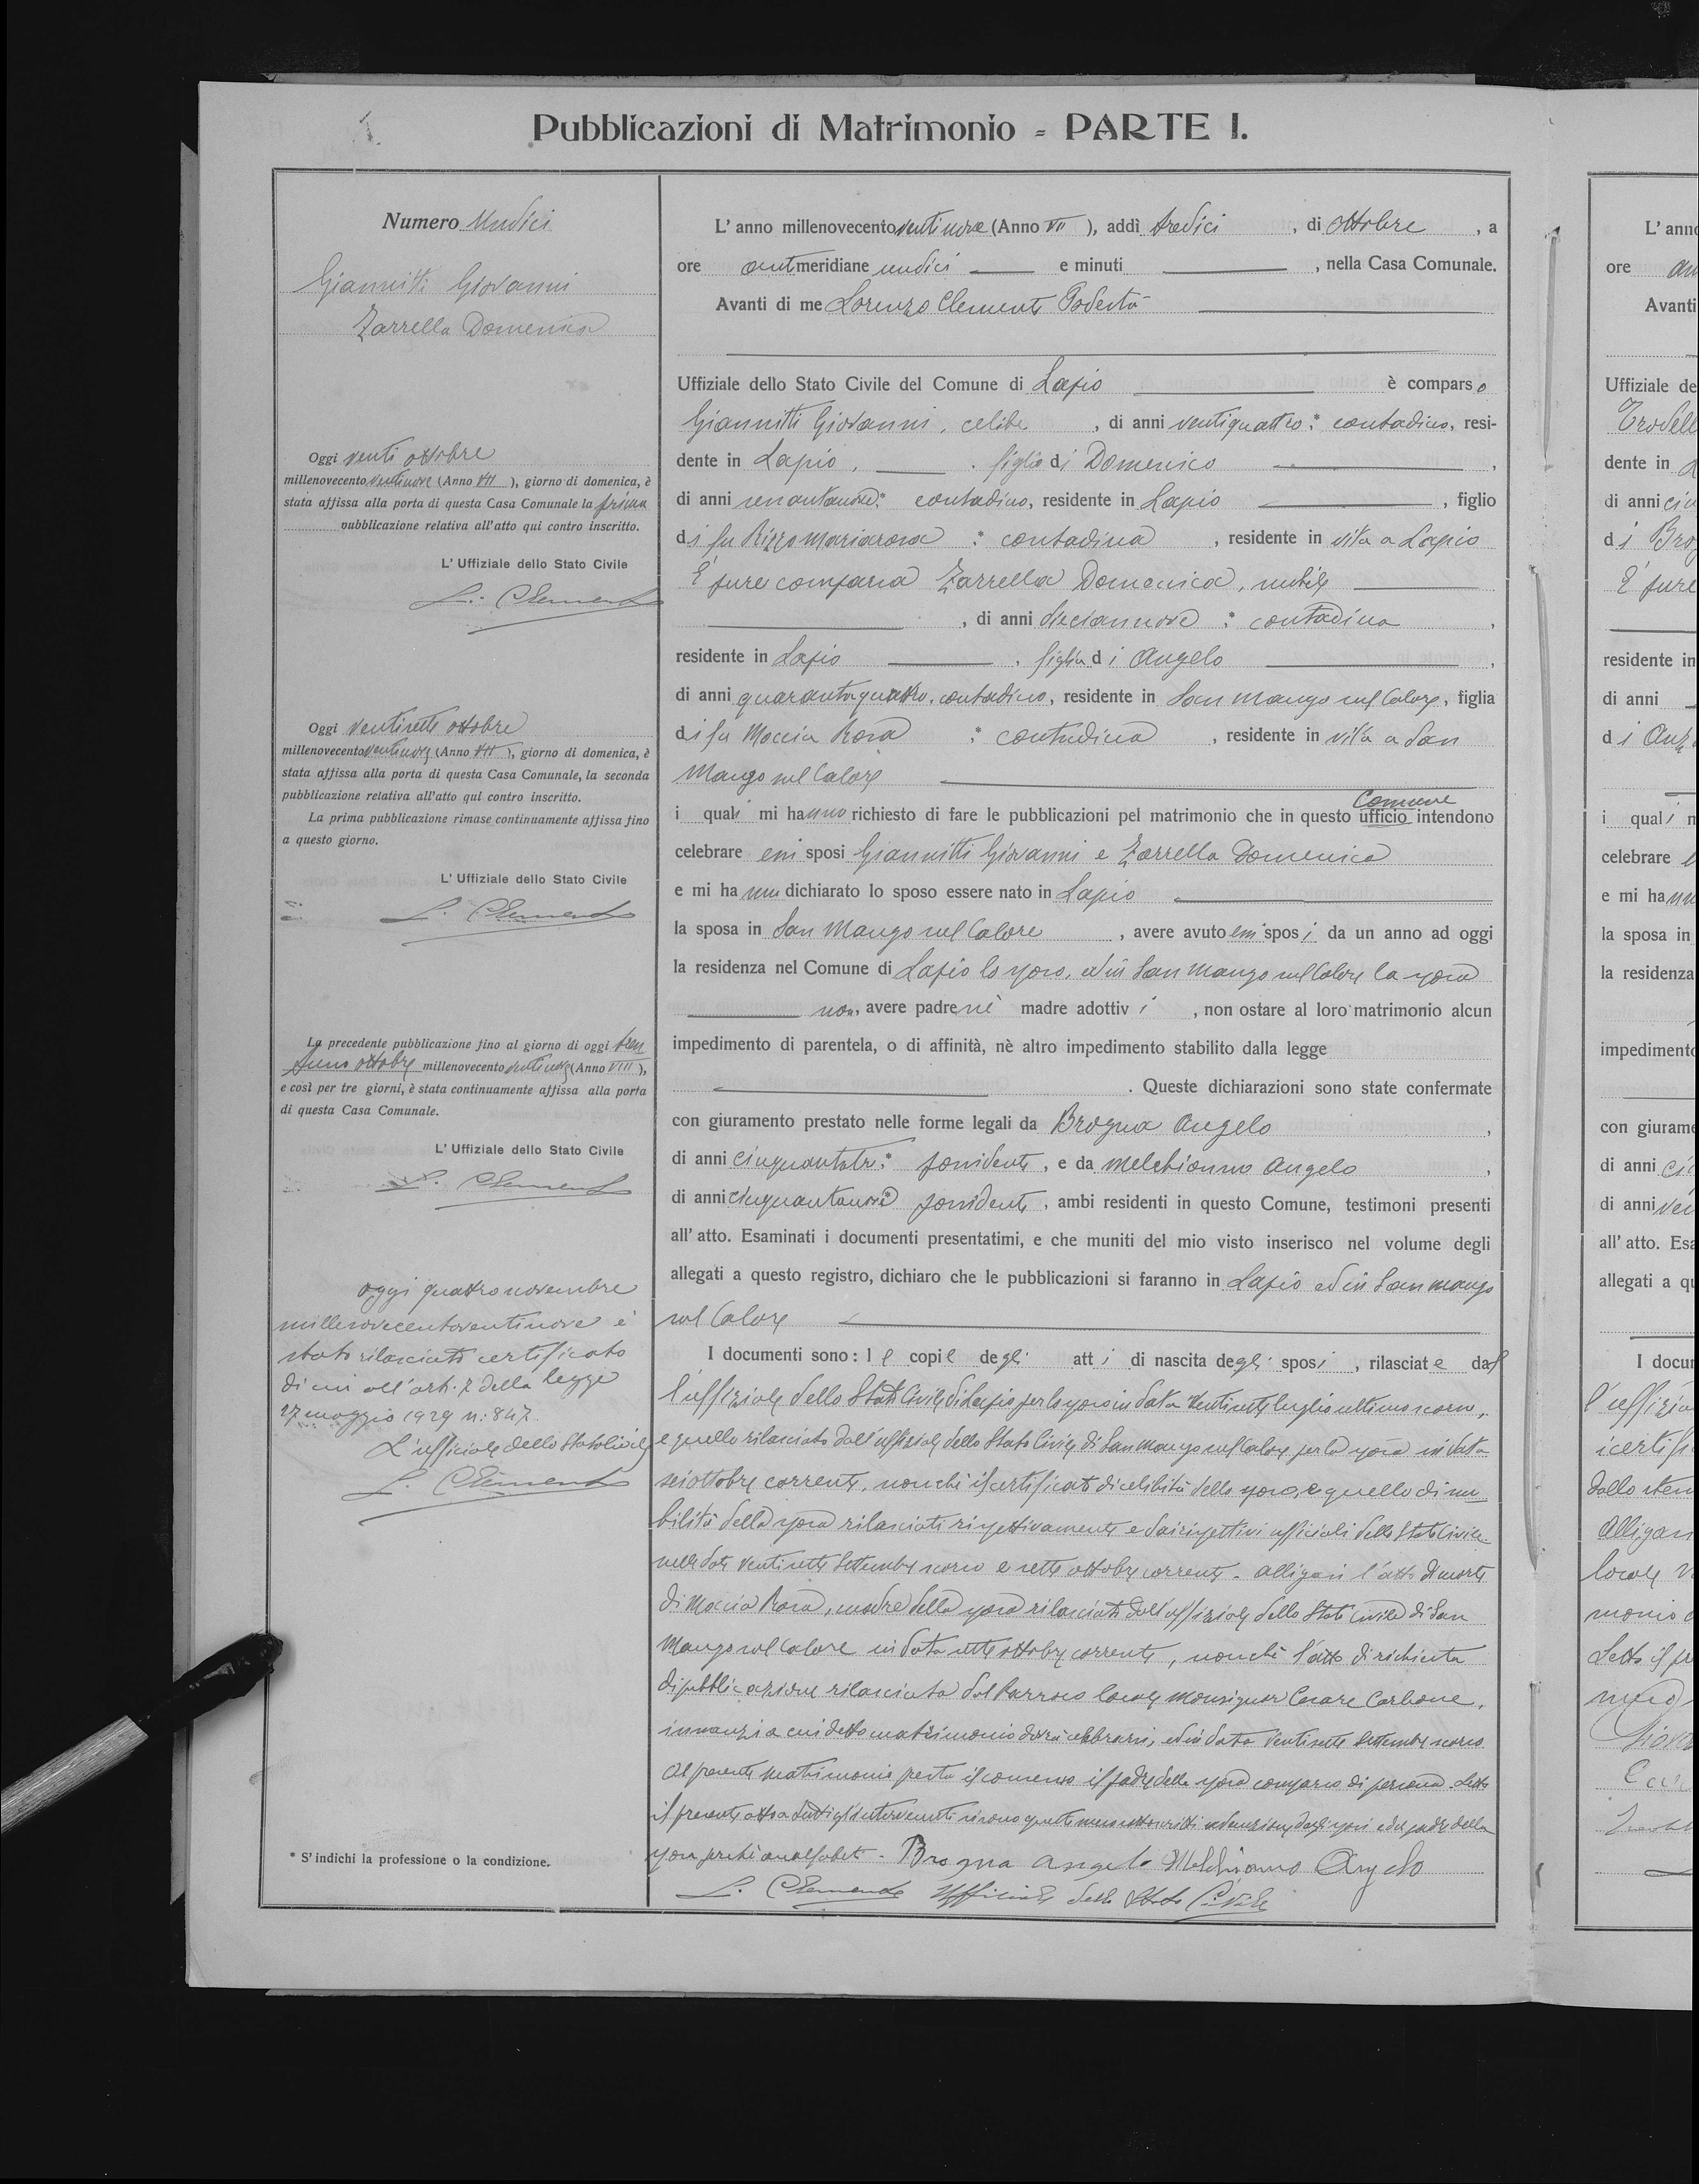 Pubblicazioni di Matrimonio = PARTE I.
Numero Undici
Giannitti Giovanni
Zarrella Domenica
Oggi venti ottobre
millenovecento ventinove (Anno VII), giorno di domenica, è
stata affissa alla porta di questa Casa Comunale la prima
pubblicazione relativa all'atto qui contro inscritto.
L'Uffiziale dello Stato Civile
L. Clemente
Oggi ventisette ottobre
millenovecento ventinove (Anno VII), giorno di domenica, è
stata affissa alla porta di questa Casa Comunale, la seconda
pubblicazione relativa all'atto qui contro inscritto.
La prima pubblicazione rimase continuamente affissa fino
a questo giorno.
L'Uffiziale dello Stato Civile
L. Clemente
La precedente pubblicazione fino al giorno di oggi tren
tuno ottobre millenovecento ventinove (Anno VIII),
e così per tre giorni, è stata continuamente affissa alla porta
di questa Casa Comunale.
L'Uffiziale dello Stato Civile
L. Clemente
Oggi quattro novembre
millenovecentoventinove è
stato rilasciato certificato
di cui all'art. 7 della legge
27 maggio 1929 n: 847.
L'ufficiale dello Stato Civile
L. Clemente
* S'indichi la professione o la condizione.
L'anno millenovecento ventinove (Anno VII), addì tredici, di ottobre, a
ore antmeridiane undici e minuti , nella Casa Comunale.
Avanti di me Lorenzo Clemente Podestà
Uffiziale dello Stato Civile del Comune di Lapio è comparso
Giannitti Giovanni, celibe, di anni ventiquattro * contadino, resi-
dente in Lapio, . figlio di Domenico ,
di anni * contadino, residente in Lapio , figlio
di fu Rizzo Mariarosa * contadina, residente in vita a Lapio
È pure comparsa Zarrella Domenica, nubile
, di anni diciannove * contadina,
residente in Lapio . figlia di Angelo ,
di anni quarantaquattro, contadino, residente in San Mango sul Calore, figlia
di fu Moccia Rosa * contadina, residente in vita a San
Mango sul Calore
i quali mi hanno richiesto di fare le pubblicazioni pel matrimonio che in questo ufficio Comune intendono
celebrare essi sposi Giannitti Giovanni e Zarrella Domenica
e mi hanno dichiarato lo sposo essere nato in Lapio
la sposa in San Mango sul Calore, avere avuto essi sposi da un anno ad oggi
la residenza nel Comune di Lapio lo sposo, ed in San Mango sul Calore la sposa
non, avere padre nè madre adottivi, non ostare al loro matrimonio alcun
impedimento di parentela, o di affinità, nè altro impedimento stabilito dalla legge
. Queste dichiarazioni sono state confermate
con giuramento prestato nelle forme legali da Brogna Angelo,
di anni cinquantatre * possidente, e da Melchionno Angelo,
di anni cinquantanove * possidente, ambi residenti in questo Comune, testimoni presenti
all'atto. Esaminati i documenti presentatimi, e che muniti del mio visto inserisco nel volume degli
allegati a questo registro, dichiaro che le pubblicazioni si faranno in Lapio ed in San Mango
sul Calore
I documenti sono: le copie degli atti di nascita degli sposi, rilasciate dal
l'uffiziale dello Stato Civile di Lapio per lo sposo in data ventisette luglio ultimo scorso,
e quello rilasciato dall'uffiziale dello Stato Civile di San Mango sul Calore per la sposa in data
sei ottobre corrente, nonchè il certificato di celibità dello sposo, e quello di nu-
bilità della sposa rilasciati rispettivamente e dai rispettivi ufficiali dello Stato Civile
nelle date ventisette Settembre scorso e sette ottobre corrente. Alligasi l'atto di morte
di Moccia Rosa, madre della sposa rilasciato dall'uffiziale dello Stato Civile di San
Mango sul Calore in data sette ottobre corrente, nonchè l'atto di richiesta
di pubblicazione rilasciato dal Parroco locale Monsignor Cesare Carbone,
innanzi a cui detto matrimonio dovrà celebrarsi, ed in data ventisette Settembre scorso
Al presente matrimonio presta il consenso il padre della sposa comparso di persona. Letto
il presente atto a tutti gl'intervenuti si sono questi meco sottoscritti ad eccezione degli sposi e del padre della
sposa perchè analfabeti. Brogna Angelo Melchionno Angelo
L. Clemente Ufficiale dello Stato Civile
L'anno
ore an
Avanti
Uffiziale de
dente in
di anni
di Bro
È pure
residente in
di anni
di Anz
i quali m
celebrare
e mi hann
la sposa in
la residenza
impedimento
con giurame
di anni ci
di anni ven
all'atto. Esa
allegati a qu
I docu
l'uffizia
i certifi
dallo sten
Alligan
locale
monio
Letto il pr